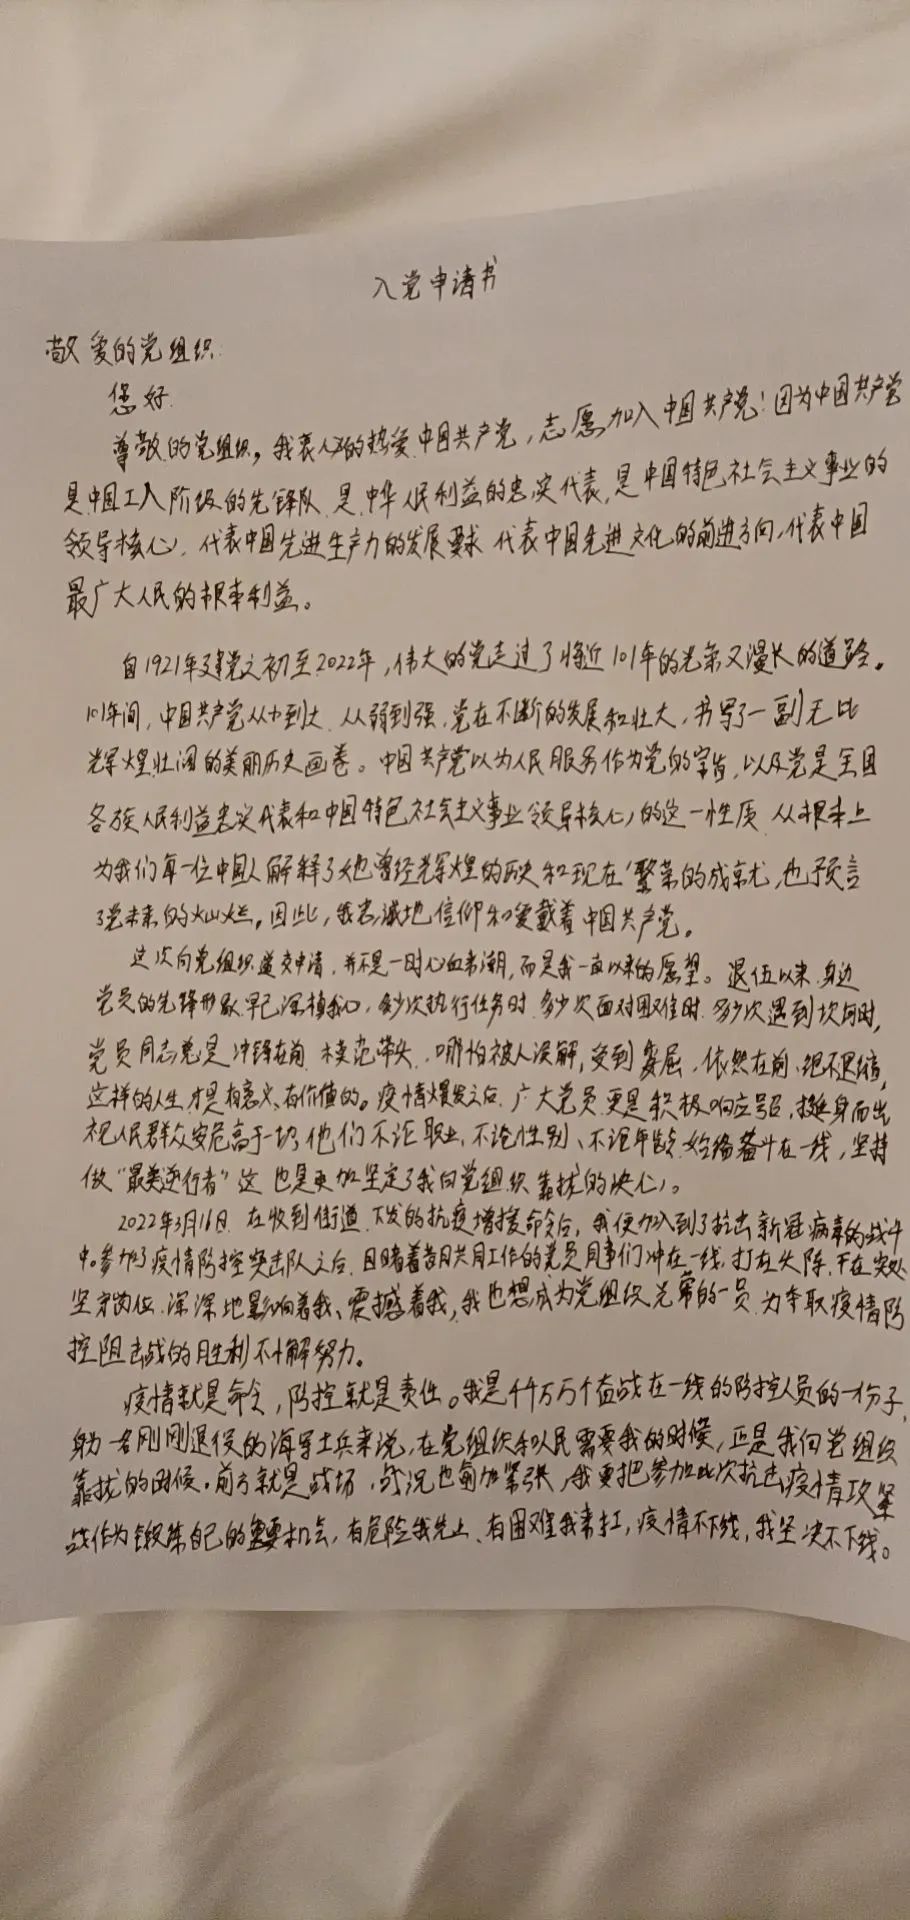 入党申请书
敬爱的党组织:
您好
尊敬的党组织,我衷心的热爱中国共产党,志愿加入中国共产党!因为中国共产党
是中国工人阶级的先锋队 是中华人民利益的忠实代表,是中国特色社会主义事业的
领导核心,代表中国先进生产力的发展要求 代表中国先进文化的前进方向,代表中国
最广大人民的根本利益。
自1921年建党之初至2022年,伟大的党走过了将近101年的光荣又漫长的道路。
101年间,中国共产党从小到大 从弱到强,党在不断的发展和壮大,书写了一副无比
辉煌壮阔的美丽历史画卷。中国共产党以为人民服务作为党的宗旨,以及党是全国
各族人民利益忠实代表和中国特色社会主义事业领导核心的这一性质 从根本上
为我们每一位中国人解释了她曾经辉煌的历史和现在繁荣的成就,也预言
了党未来的灿烂。因此,我忠诚地信仰和爱戴着中国共产党。
这次向党组织递交申请,并不是一时心血来潮,而是我一直以来的愿望。退伍以来,身边
党员的先锋形象早已深植我心,多少次执行任务时 多少次面对困难时 多少次遇到坎坷时,
党员同志总是冲锋在前 模范带头,哪怕被人误解,受到委屈,依然在前、绝不退缩,
这样的人生才是有意义、有价值的。疫情爆发之后 广大党员更是积极响应号召,挺身而出
视人民群众安危高于一切 他们不论职业,不论性别、不论年龄 始终奋斗在一线,坚持
做“最美逆行者”这 也是更加坚定了我向党组织靠拢的决心。
2022年3月16日 在收到街道下发的抗疫增援命令后,我便加入到了抗击新冠病毒的战斗
中。参加了疫情防控突击队之后 目睹着昔日共同工作的党员同事们冲在一线,打在头阵,干在实处
坚守岗位 深深地影响着我、震撼着我,我也想成为党组织光荣的一员 为争取疫情防
控阻击战的胜利不懈努力。
疫情就是命令,防控就是责任。我是千千万万个奋战在一线的防控人员的一份子,
身为一名刚刚退役的海军士兵来说,在党组织和人民需要我的时候,正是我向党组织
靠拢的时候。前方就是战场,战况也愈加紧张,我要把参加此次抗击疫情攻坚
战作为锻炼自己的重要机会,有危险我先上、有困难我来扛,疫情不下线,我坚决不下线。